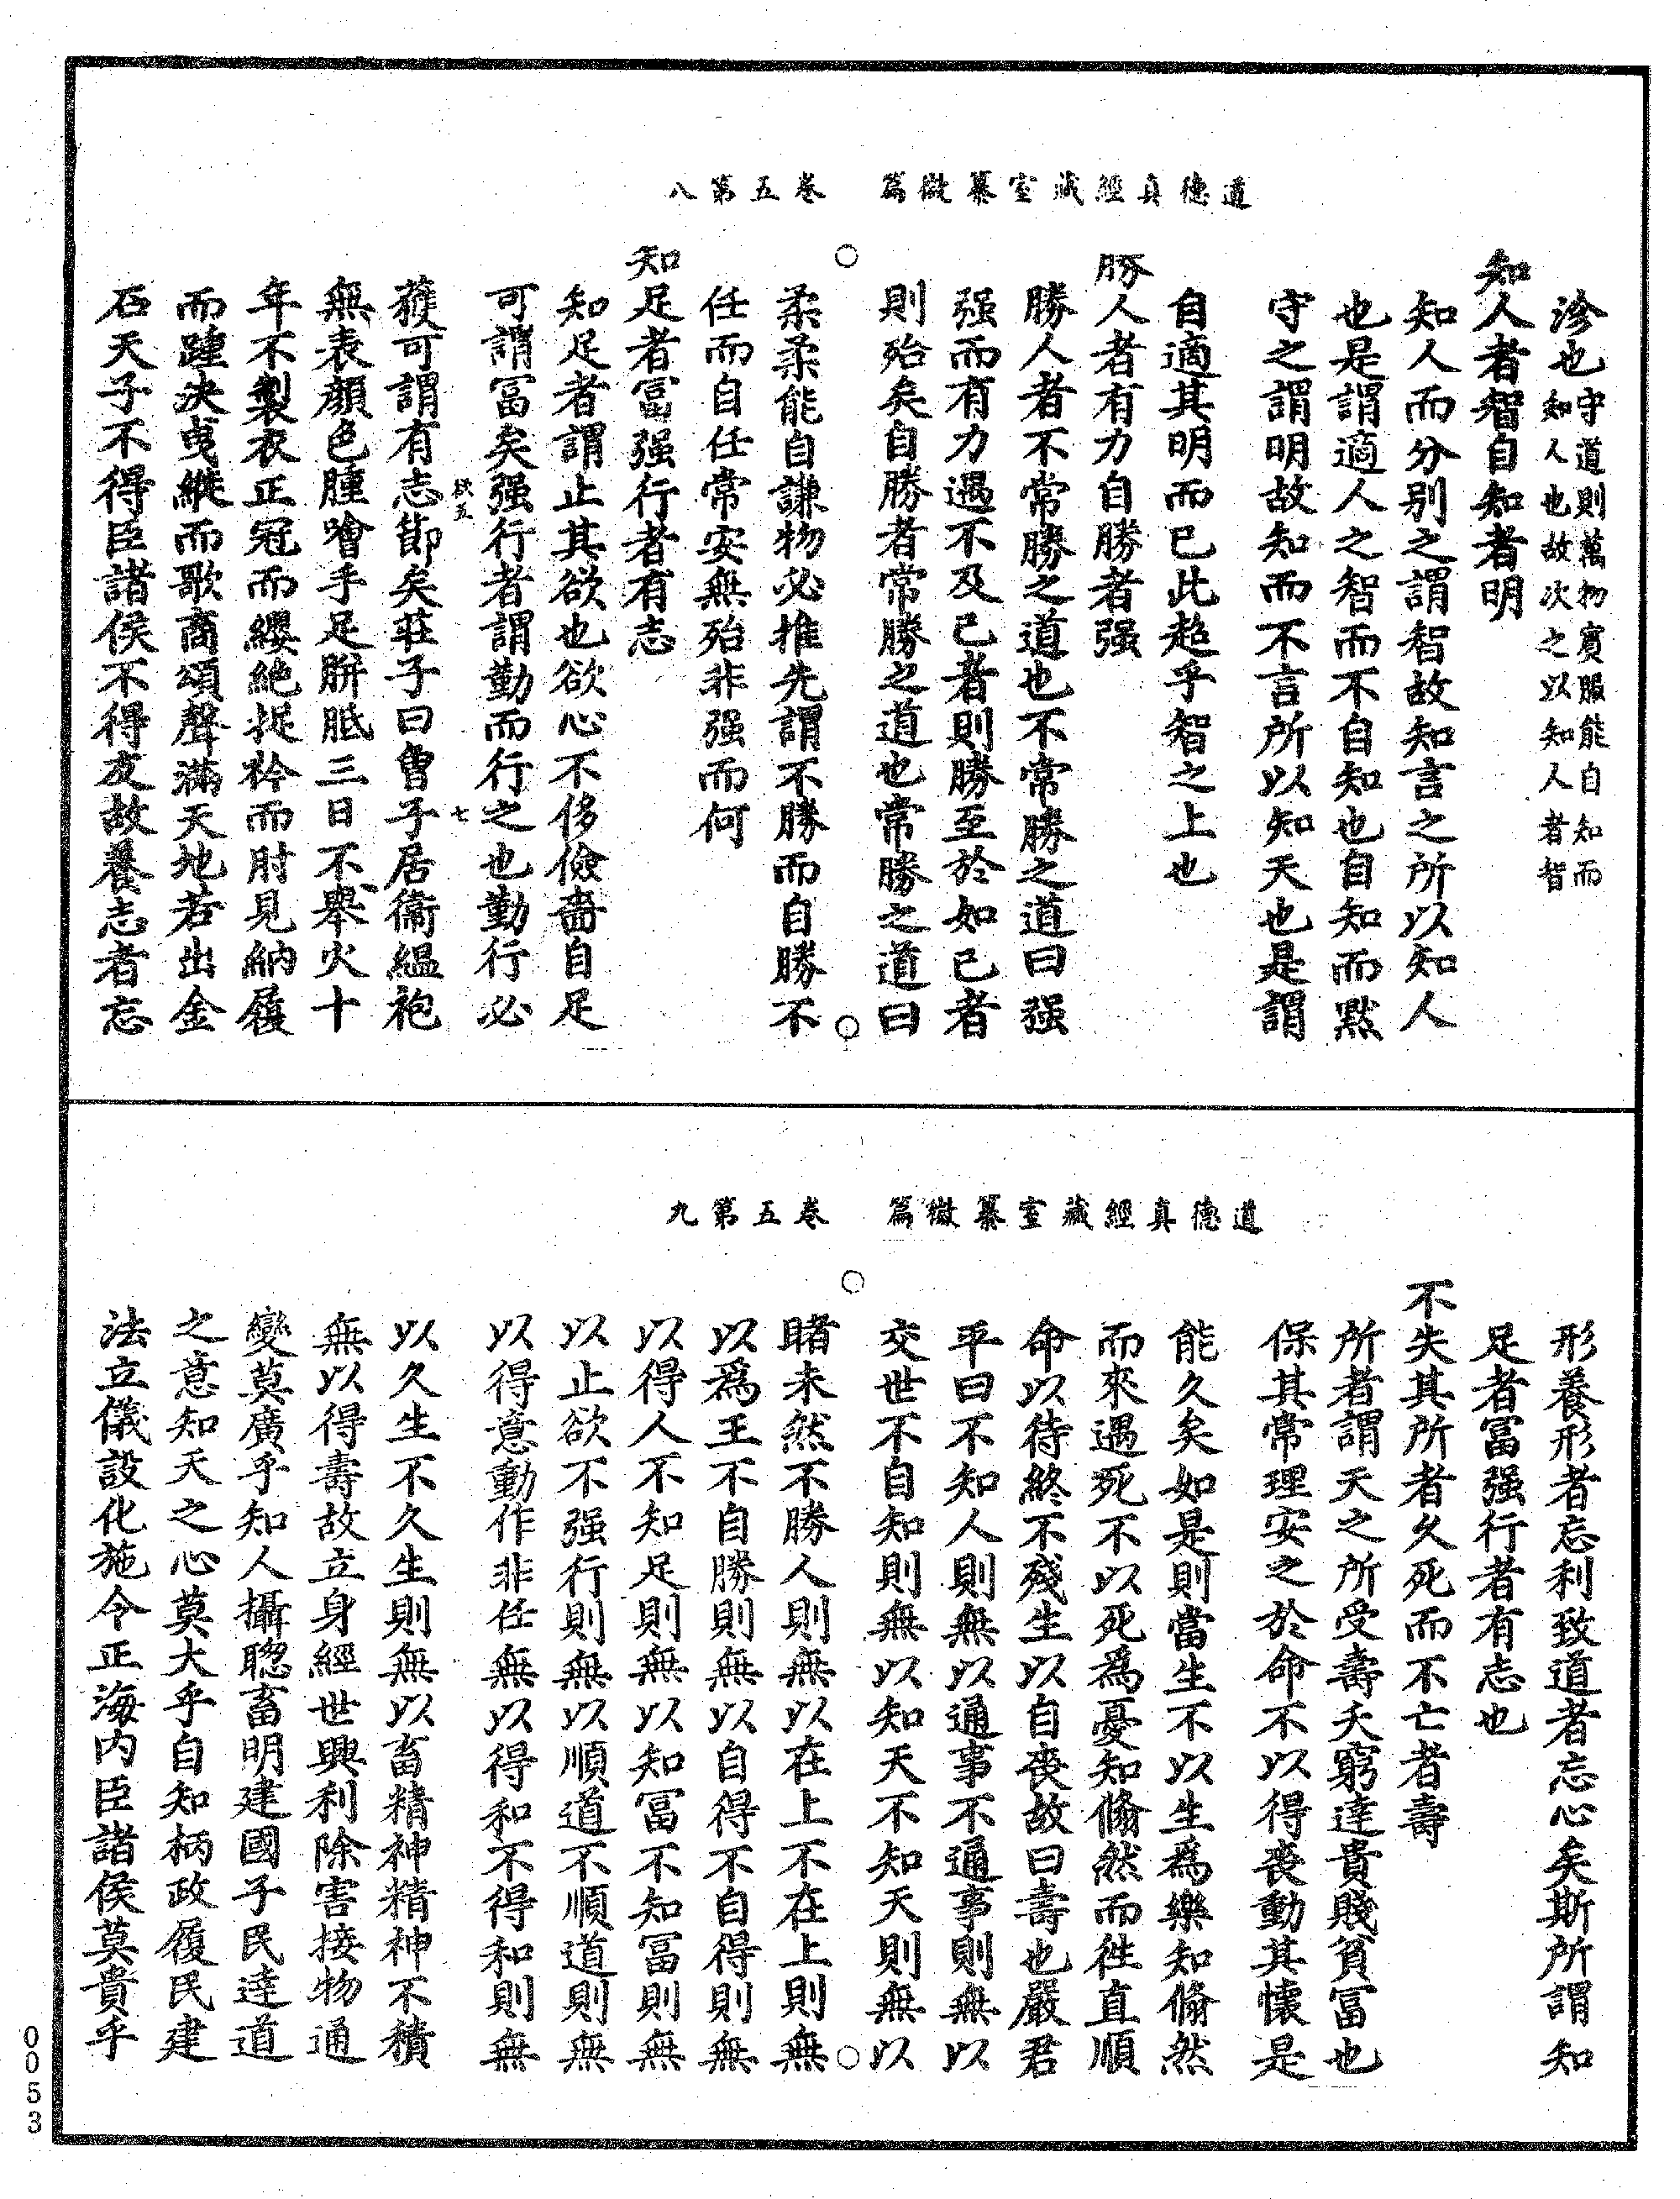 道德真經藏室纂微篇　卷五第八
沴也守道則萬物賓服能自知而
知人也故次之以知人者智
知人者智自知者明
知人而分别之謂智故知言之所以知人
也是謂適人之智而不自知也自知而默
守之謂明故知而不言所以知天也是謂
自適其明而已此超乎智之上也
勝人者有力自勝者强
勝人者不常勝之道也不常勝之道曰强
强而有力遇不及己者則勝至於如己者
則殆矣自勝者常勝之道也常勝之道曰
柔柔能自謙物必推先謂不勝而自勝不
任而自任常安無殆非强而何
知足者富强行者有志
知足者謂止其欲也欲心不侈儉嗇自足
可謂富矣强行者謂勤而行之也勤行必
欲五　七
獲可謂有志節矣莊子曰曾子居衞縕袍
無表顔色腫噲手足胼胝三日不舉火十
年不製衣正冠而纓絶捉衿而肘見納屨
而踵決曳縰而歌商頌聲滿天地若出金
石天子不得臣諸侯不得友故養志者忘
道德真經藏室纂微篇　卷五第九
形養形者忘利致道者忘心矣斯所謂知
足者富强行者有志也
不失其所者久死而不亡者壽
所者謂天之所受壽夭窮達貴賤貧富也
保其常理安之於命不以得喪動其懷是
能久矣如是則當生不以生爲樂知翛然
而來遇死不以死爲憂知翛然而往直順
命以待終不殘生以自喪故曰壽也嚴君
平曰不知人則無以通事不通事則無以
交世不自知則無以知天不知天則無以
睹未然不勝人則無以在上不在上則無
以爲王不自勝則無以自得不自得則無
以得人不知足則無以知富不知富則無
以止欲不强行則無以順道不順道則無
以得意動作非任無以得和不得和則無
以久生不久生則無以畜精神精神不積
無以得壽故立身經世興利除害接物通
變莫廣乎知人攝聦畜明建國子民達道
之意知天之心莫大乎自知柄政履民建
法立儀設化施令正海内臣諸侯莫貴乎
0053